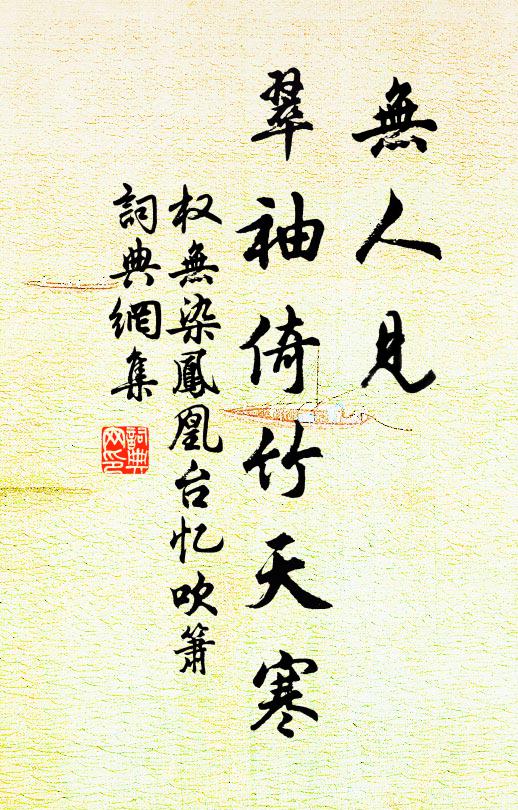 無人見
翠袖倚竹天寒
权無染鳳凰台忆吹簫
詞典網集
詞典
网印